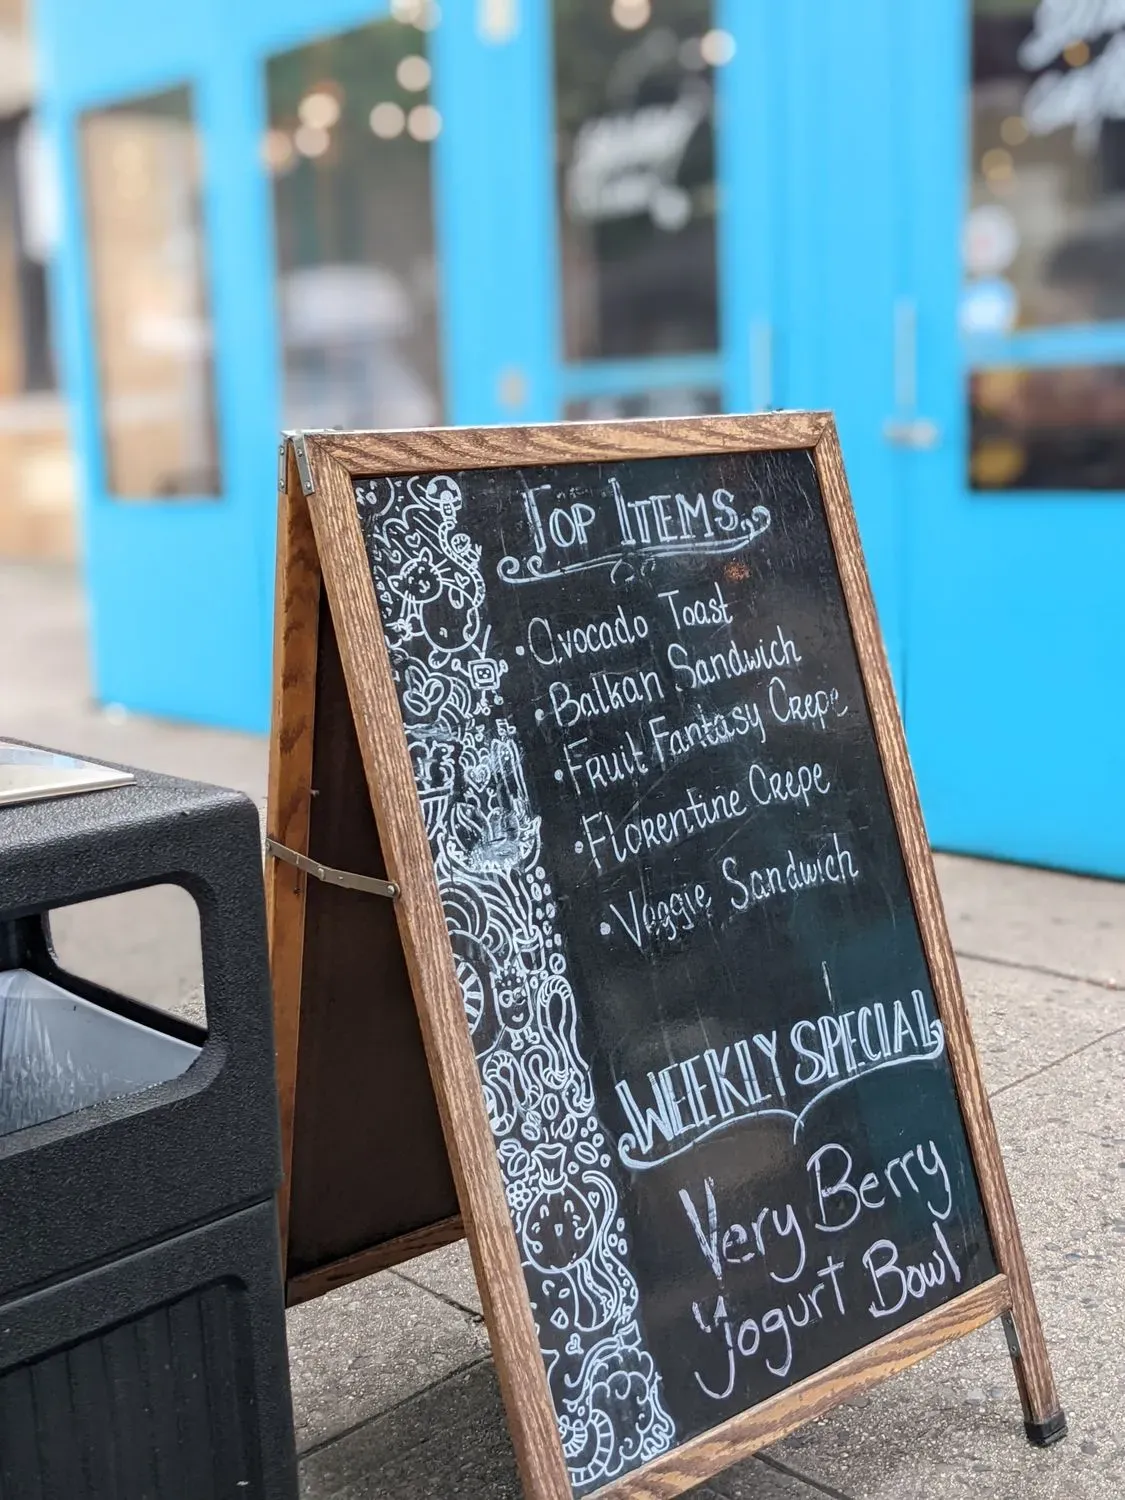 TOP ITEMS
• Avocado Toast
• Balkan Sandwich
• Fruit Fantasy Crepe
• Florentine Crepe
• Veggie Sandwich
WEEKLY SPECIAL
Very Berry
Yogurt Bowl